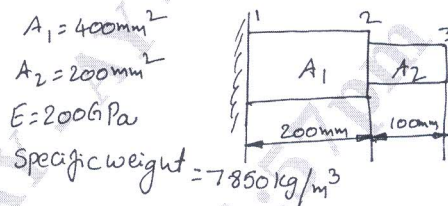 A₁=400mm²
A₂=200mm²
E=200GPa
Specific weight =7850kg/m³
1
2
3
A₁
A₂
200mm
100mm